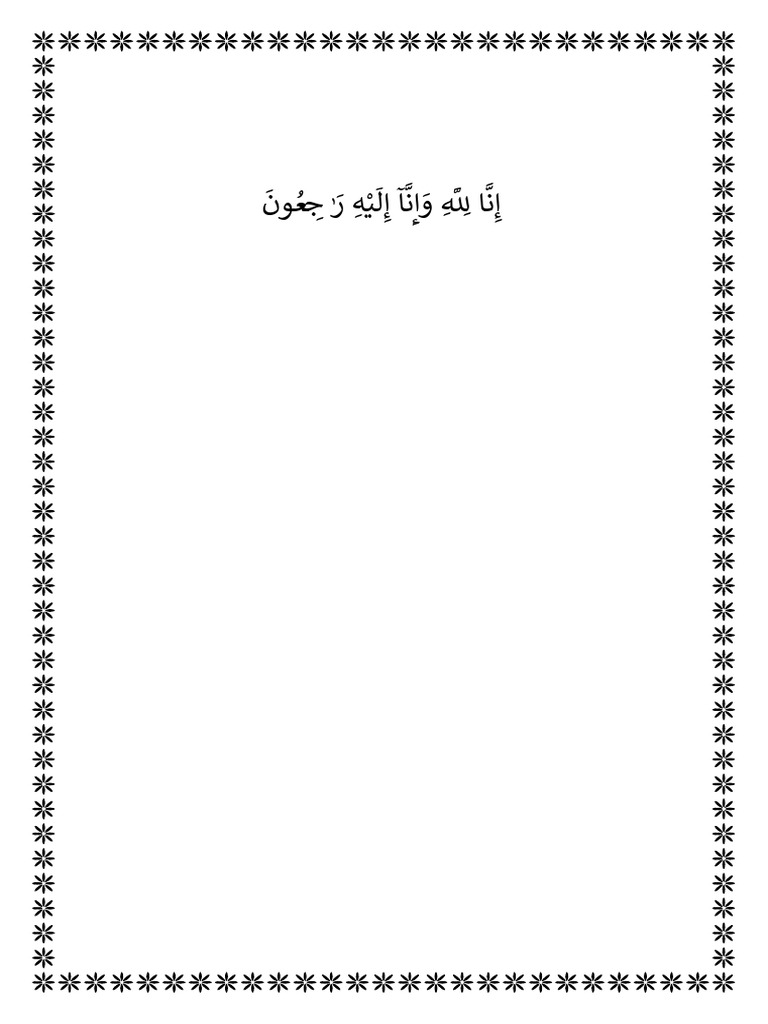 إِنَّا لِلَّهِ وَإِنَّآ إِلَيْهِ رَٰجِعُونَ